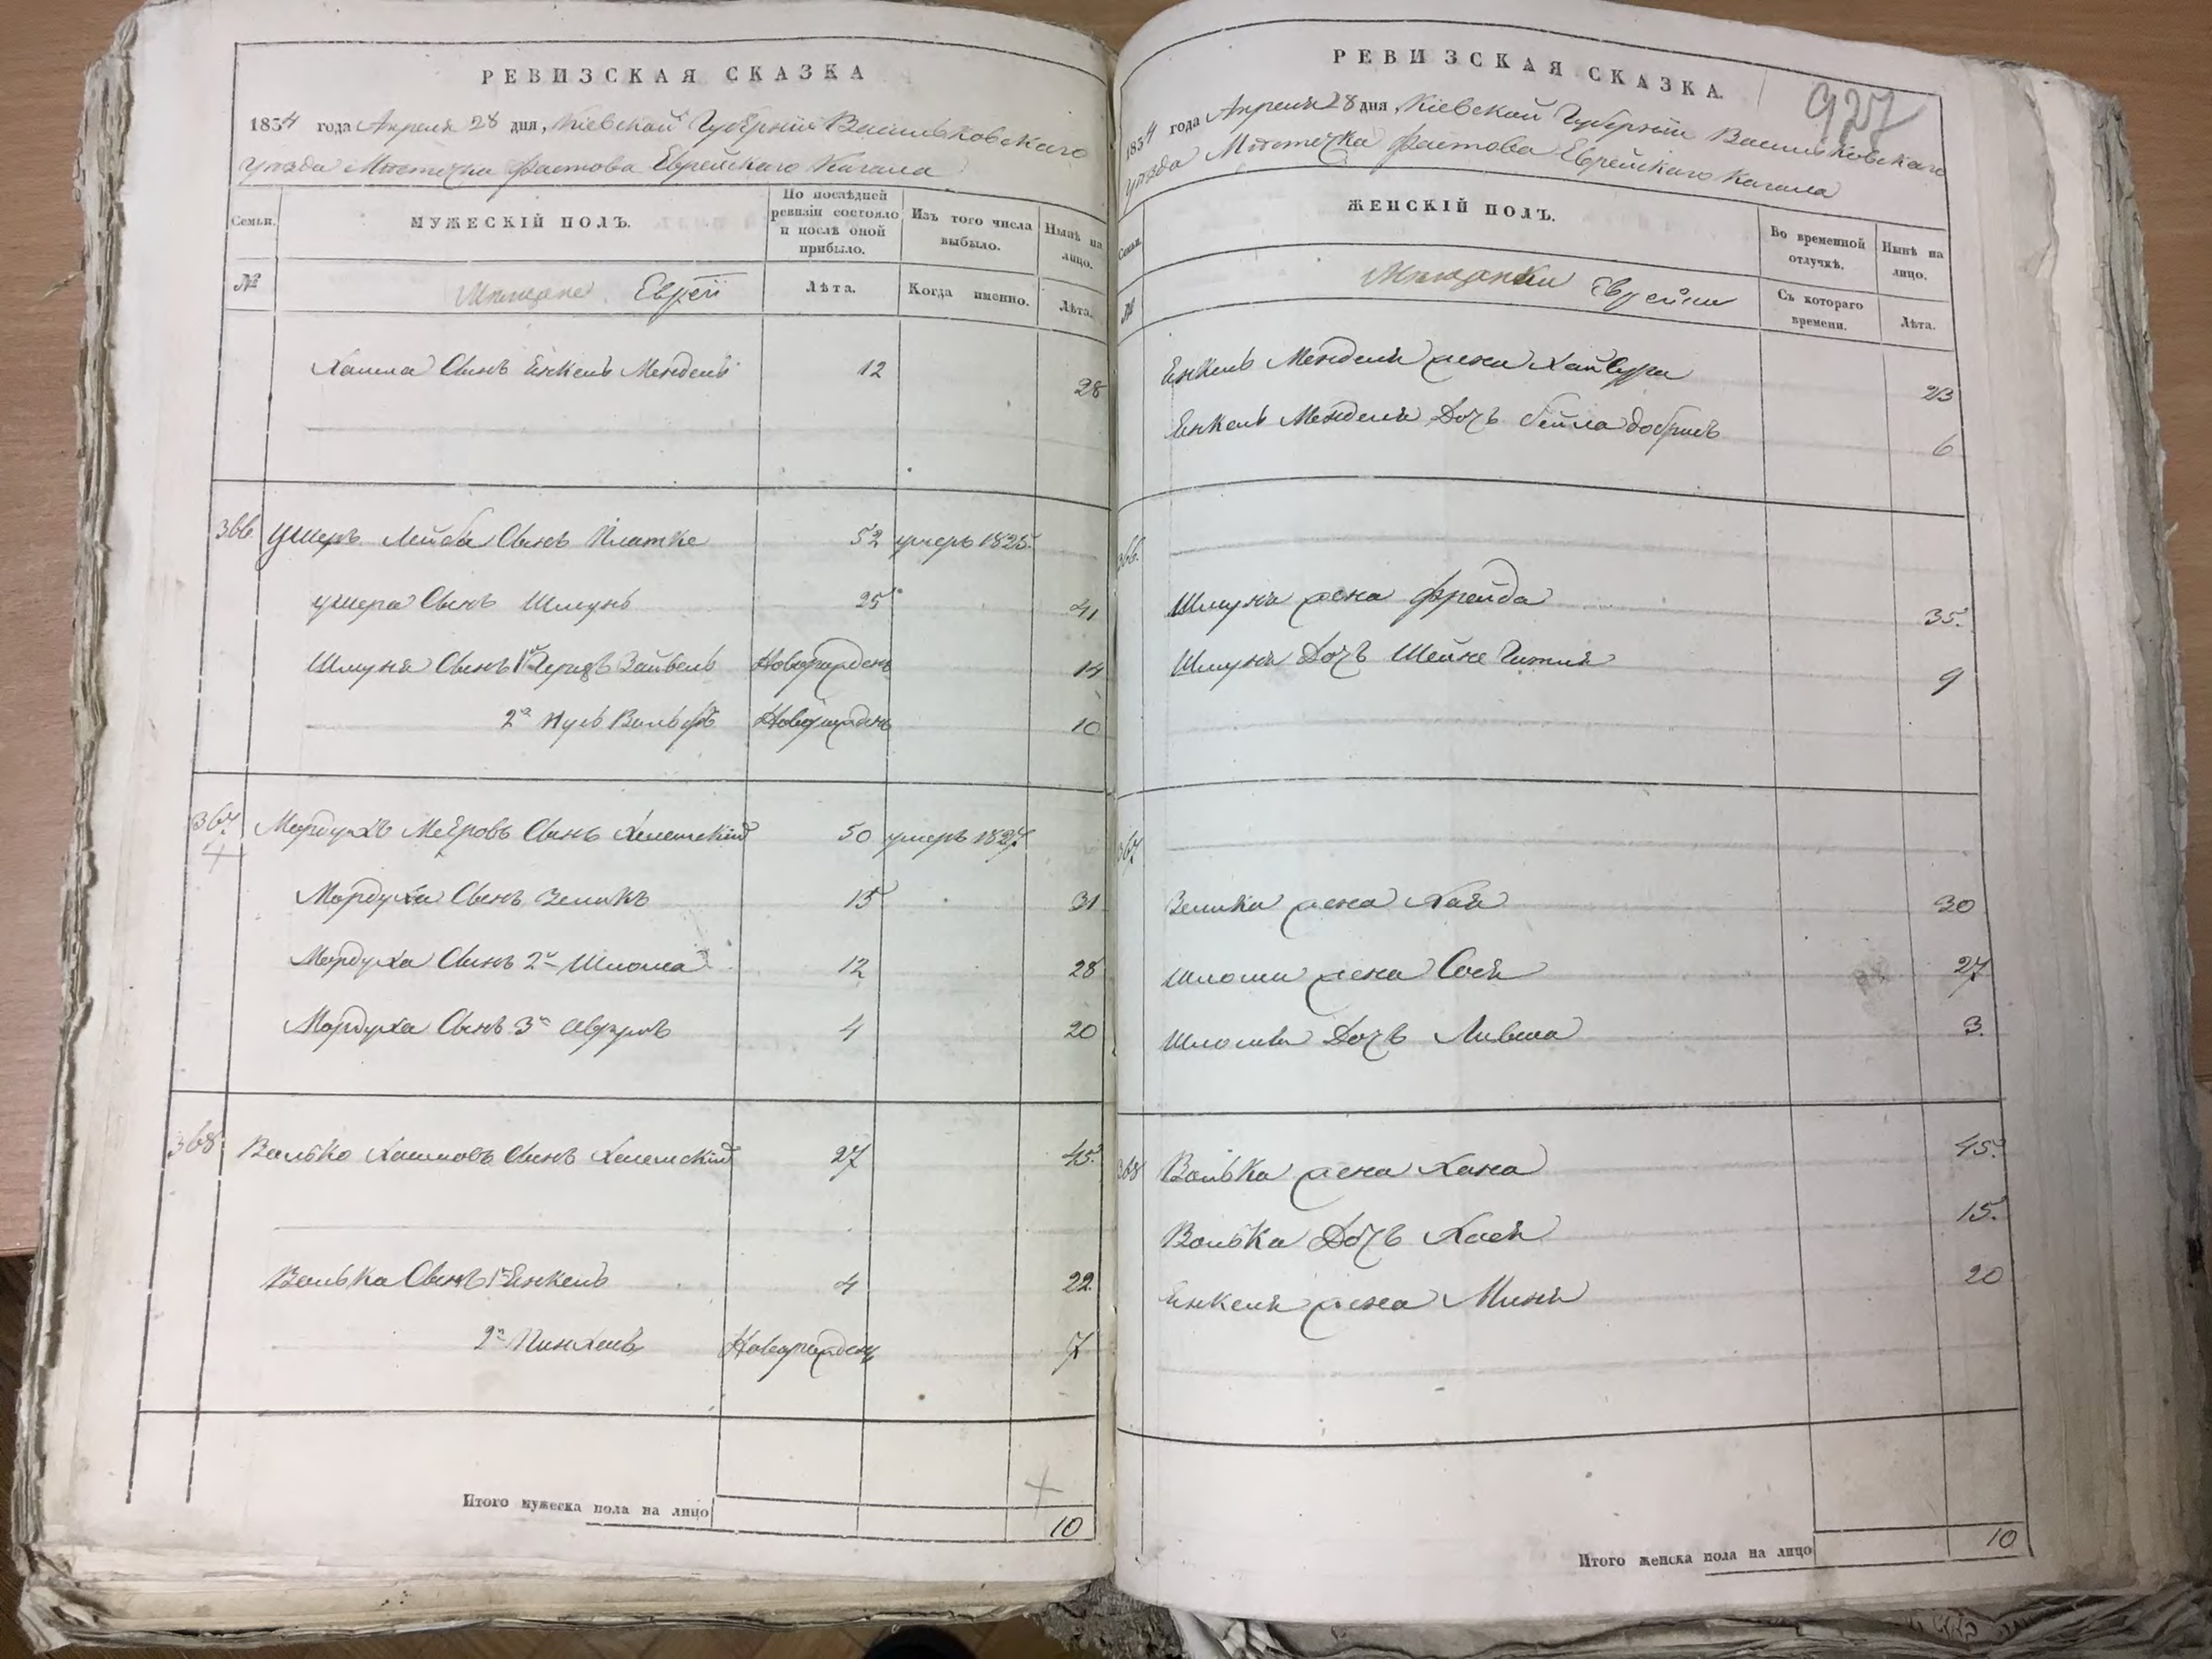 РЕВИЗСКАЯ СКАЗКА
1834 года Апреля 28 дня, Кіевской Губерніи Васильковскаго
уѣзда Мѣстечка Фастова Еврейскаго Кагала
Семьи.
МУЖЕСКІЙ ПОЛЪ.
По послѣдней ревизіи состояло и послѣ оной прибыло.
Изъ того числа выбыло.
Нынѣ на лицо.
№
Мѣщане Евреи
Лѣта.
Когда именно.
Лѣта.
Хаима Сынъ Енкель Мендель 12 28
366 Ушеръ Лейба Сынъ Платке 52 умеръ 1825.
Ушера Сынъ Шмунь 25 41
Шмуня Сынъ 1й Зайвель Новорожденъ 14
2й Нуль Вольфъ Новорожденъ 10
367 Мордухъ Меѣровъ Сынъ 50 умеръ 1827
Мордуха Сынъ Зеликъ 15 31
Мордуха Сынъ 2й Шлома 12 28
Мордуха Сынъ 3й 4 20
368 Волько Хаимовъ Сынъ 27 45
Волька Сынъ 1й Енкель 4 22
2й Пинхасъ Новорожденъ 7
Итого мужеска пола на лицо 10
РЕВИЗСКАЯ СКАЗКА.
927
1834 года Апреля 28 дня, Кіевской Губерніи Васильковскаго
уѣзда Мѣстечка Фастова Еврейскаго Кагала
Семьи.
ЖЕНСКІЙ ПОЛЪ.
Во временной отлучкѣ.
Нынѣ на лицо.
№
Мѣщанки Еврейки
Съ котораго времени.
Лѣта.
Енкель Менделя жена Хая Сура 23
Енкель Менделя Дочь Бейла Добришъ 6
366.
Шмуня жена Фрейда 35.
Шмуня Дочь Шейне Гитля 9
367
Зелика жена Хая 30
Шломы жена Сося 27
Шломы Дочь Ливша 3.
368 Волька жена Хана 45
Волька Дочь Хася 15.
Енкеля жена Миня 20
Итого женска пола на лицо 10